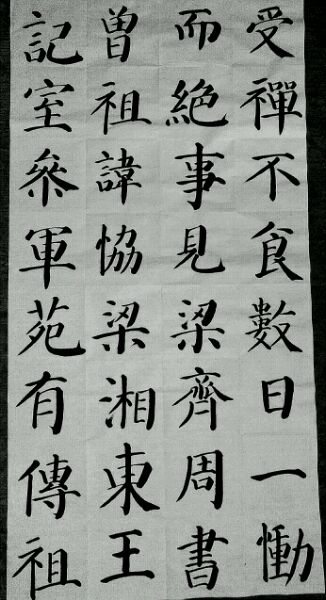 受禪不食數日一慟
而絕事見梁齊周書
曾祖諱恊梁湘東王
記室參軍苑有傳祖